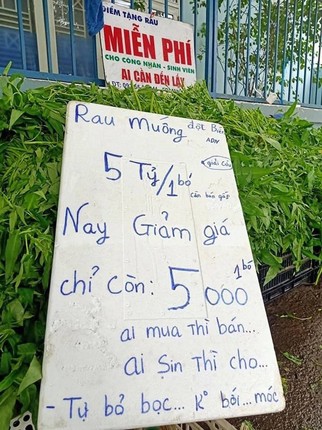 ĐIỂM TẶNG RAU
MIỄN PHÍ
CHO CÔNG NHÂN - SINH VIÊN
AI CẦN ĐẾN LẤY
Rau Muống đột Biến
ADN
giải cứu
5 Tỷ/1 bó
cần bán gấp
Nay Giảm giá
chỉ còn: 5 000 1 bó
ai mua Thì bán...
ai Sin Thì cho...
- Tự bỏ bọc... K° bới... móc